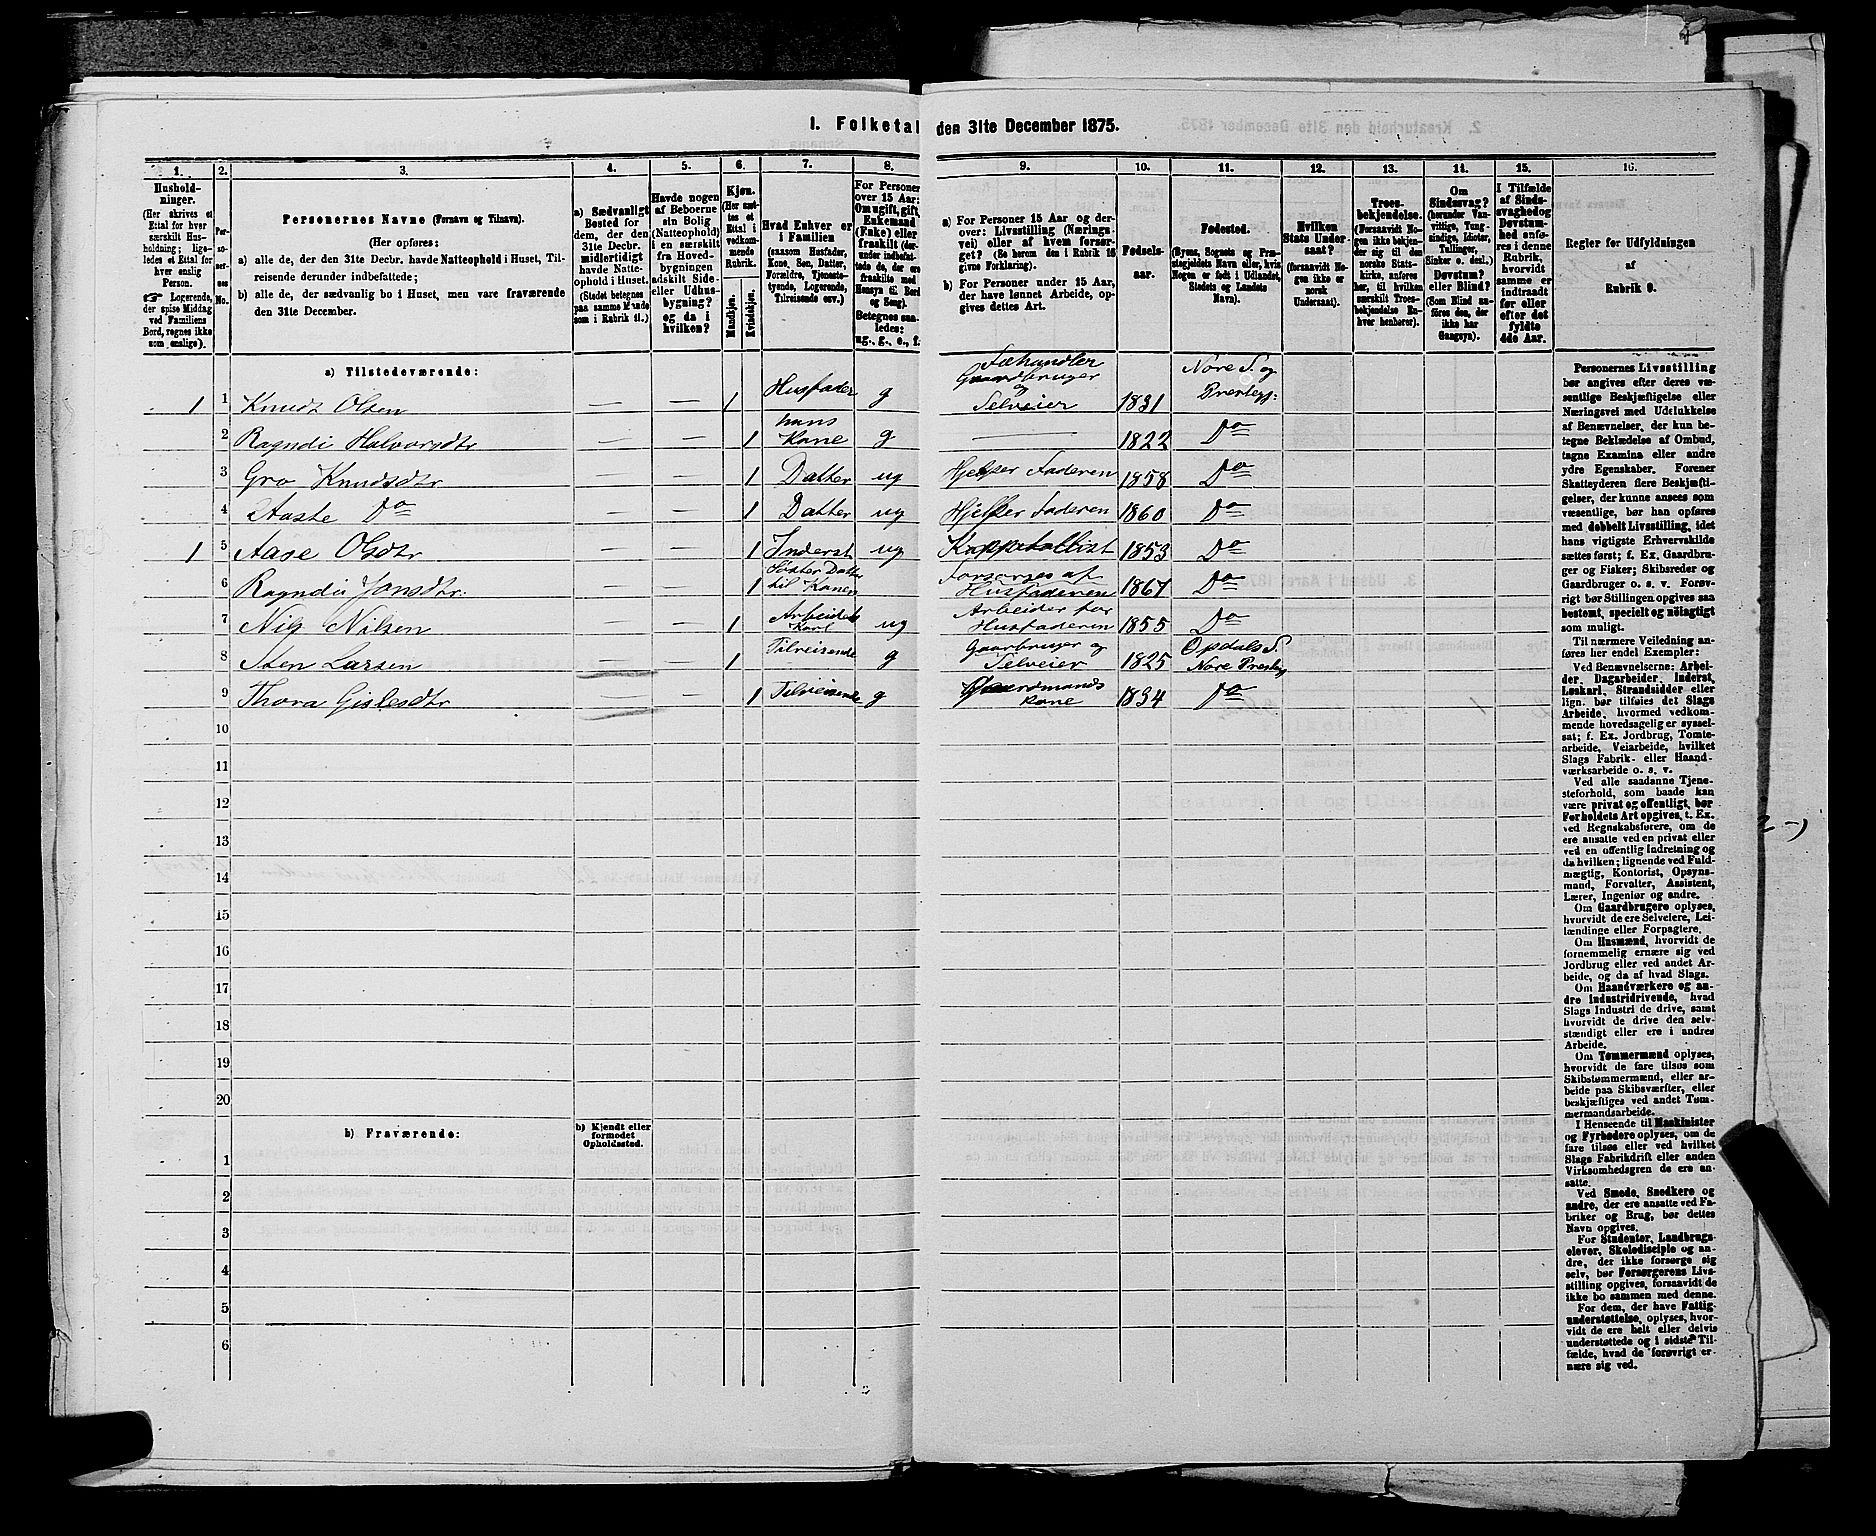 1. Folketal den 31te December 1875.
1. 2. 3. 4. 5. 6. 7. 8. 9. 10. 11. 12. 13. 14. 15. 16.
Hushold-
ninger.
(Her skrives et
Ettal for hver
særskilt Hus-
holdning; lige-
ledes et Ettal for
hver enslig
Person.
☞ Logerende,
der spise Middag
ved Familiens
Bord, regnes ikke
som enslige).
Per-
so-
ner-
nes
No.
Personernes Navne (Fornavn og Tilnavn).
(Her opføres:
a) alle de, der den 31te Decbr. havde Natteophold i Huset, Til-
reisende derunder indbefattede;
b) alle de, der sædvanlig bo i Huset, men vare fraværende
den 31te December.
a) Sædvanligt
Bosted for
dem, der den
31te Decbr.
midlertidigt
havde Natte-
ophold i Huset.
(Stedet betegnes
paa samme Maade
som i Rubrik 11.)
Havde nogen
af Beboerne
sin Bolig
(Natteophold)
i en særskilt
fra Hoved-
bygningen
adskilt Side-
eller Udhus-
bygning?
og da i
hvilken?
Kjøn.
(Her sæt-
tes et
Ettal i
vedkom-
mende
Rubrik.
Mandkjøn.
Kvindekjøn.
Hvad Enhver er
i Familien
(saasom Husfader,
Kone, Søn, Datter,
Forældre, Tjeneste-
tyende, Logerende,
Tilreisende osv.)
For Personer
over 15 Aar:
Om ugift, gift,
Enkemand
(Enke) eller
fraskilt (der-
under indbefat-
tede de, der ere
fraskilte med
Hensyn til Bord
og Seng).
Betegnes saa-
ledes:
ug., g., e., f.
a) For Personer 15 Aar og der-
over: Livsstilling (Nærings-
vei) eller af hvem forsør-
get? (Se herom den i Rubrik 16
givne Forklaring).
b) For Personer under 15 Aar,
der have lønnet Arbeide, op-
gives dettes Art.
Fødsels-
aar.
Fødested.
(Byens, Sognets og Præ-
stegjeldets Navn eller, hvis
Nogen er født i Udlandet,
Stedets og Landets
Navn).
Hvilken
Stats Under-
saat?
(forsaavidt No-
gen ikke er
norsk
Undersaat).
Troes-
bekjendelse.
(Forsaavidt No-
gen ikke bekjen-
der sig til den
norske Stats-
kirke, anføres
her, til hvilken
særskilt Troes-
bekjendelse En-
hver henhører).
Om
Sindssvag?
(herunder Van-
vittige, Tung-
sindige, Idioter,
Tullinger,
Sinker o. desl.).
Døvstum?
eller Blind?
(Som Blind an-
føres den, der
ikke har
Gangsyn).
I Tilfælde
af Sinds-
svaghed og
Døvstum-
hed anfø-
res i denne
Rubrik,
hvorvidt
samme er
indtraadt
før eller
efter det
fyldte
4de Aar.
Regler for Udfyldningen
af
Rubrik 9.
a) Tilstedeværende:
1 1 Knudt Olsen — — 1 Husfader g Fæhandler Gaardbruger og Selveier 1831 Nore S. og Prestegj:
2 Ragndi Halvorsdtr — — 1 hans Kone g — 1822 Do
3 Gro Knudsdtr — — 1 Datter ug Hjelper Faderen 1858 Do
4 Aaste Do — — 1 Datter ug Hjelper Faderen 1860 Do
1 5 Aase Olsdtr — — 1 Inderst ug Kappetallist 1853 Do
6 Ragndi Jonsdtr. — — 1 Søster Datter til Konen Forsørges af Husfaderen 1867 Do
7 Nils Nilsen — — 1 Arbeids Karl ug Arbeider for Husfaderen 1855 Do
8 Sten Larsen 1 Tilreisende g Gaarbruger og Selveier 1825 Opdals S. Nore Presteg
9 Thora Gislesdtr 1 Tilreisende g Gaardmands kone 1834 Do
10
11
12
13
14
15
16
17
18
19
20
b) Fraværende:
b) Kjendt eller
formodet
Opholdssted.
1
2
3
4
5
6
Personernes Livsstilling
bør angives efter deres væ-
sentlige Beskjæftigelse eller
Næringsvei med Udelukkelse
af Benævnelser, der kun be-
tegne Beklædelse af Ombud,
tagne Examina eller andre
ydre Egenskaber. Forener
Skatteyderen flere Beskjæfti-
gelser, der kunne ansees som
væsentlige, bør han opføres
med dobbelt Livsstilling, idet
hans vigtigste Erhvervskilde
sættes først; f. Ex. Gaardbru-
ger og Fisker; Skibsreder og
Gaardbruger o. s. v. Forøv-
rigt bør Stillingen opgives saa
bestemt, specielt og nøiagtigt
som muligt.
Til nærmere Veiledning an-
føres her endel Exempler:
Ved Benævnelserne: Arbei-
der, Dagarbeider, Inderst,
Løskarl, Strandsidder eller
lign. bør tilføies det Slags
Arbeide, hvormed vedkom-
mende hovedsagelig er syssel-
sat; f. Ex. Jordbrug, Tomte-
arbeide, Veiarbeide, hvilket
Slags Fabrik- eller Haand-
værksarbeide o. s. v.
Ved alle saadanne Tjene-
steforhold, som baade kan
være privat og offentligt, bør
Forholdets Art opgives, t. Ex.
ved Regnskabsførere, om de
ere ansatte ved en privat eller
ved en offentlig Indretning og
da hvilken; lignende ved Fuld-
mægtig, Kontorist, Opsyns-
mand, Forvalter, Assistent,
Lærer, Ingeniør og andre.
Om Gaardbrugere oplyses,
hvorvidt de ere Selveiere, Lei-
lændinge eller Forpagtere.
Om Husmænd, hvorvidt de
fornemmelig ernære sig ved
Jordbrug eller ved andet Ar-
beide, og da af hvad Slags.
Om Haandværkere og an-
dre industridrivende, hvad
Slags Industri de drive, samt
hvorvidt de drive den selv-
stændigt eller ere i andres
Arbeide.
Om Tømmermænd oplyses,
hvorvidt de fare tilsøs som
Skibstømmermænd, eller ar-
beide paa Skibsværfter, eller
beskjæftiges ved andet Tøm-
mermandsarbeide.
I Henseende til Maskinister
og Fyrbødere oplyses, om de
fare tilsøs eller ved hvilket
Slags Fabrikdrift eller anden
Virksomhedsgren de ere an-
satte.
Ved Smede, Snedkere og
andre, der ere ansatte ved Fa-
briker og Brug, bør dettes
Navn opgives.
For Studenter, Landbrugs-
elever, Skoledisciple og an-
dre, der ikke forsørge sig
selv, bør Forsørgerens Livs-
stilling opgives, forsaavidt de
ikke bo sammen med denne.
For dem, der have Fattig-
understøttelse, oplyses, hvor-
vidt de ere helt eller delvis
understøttede og i sidste Til-
fælde, hvad de forøvrigt er-
nære sig ved.